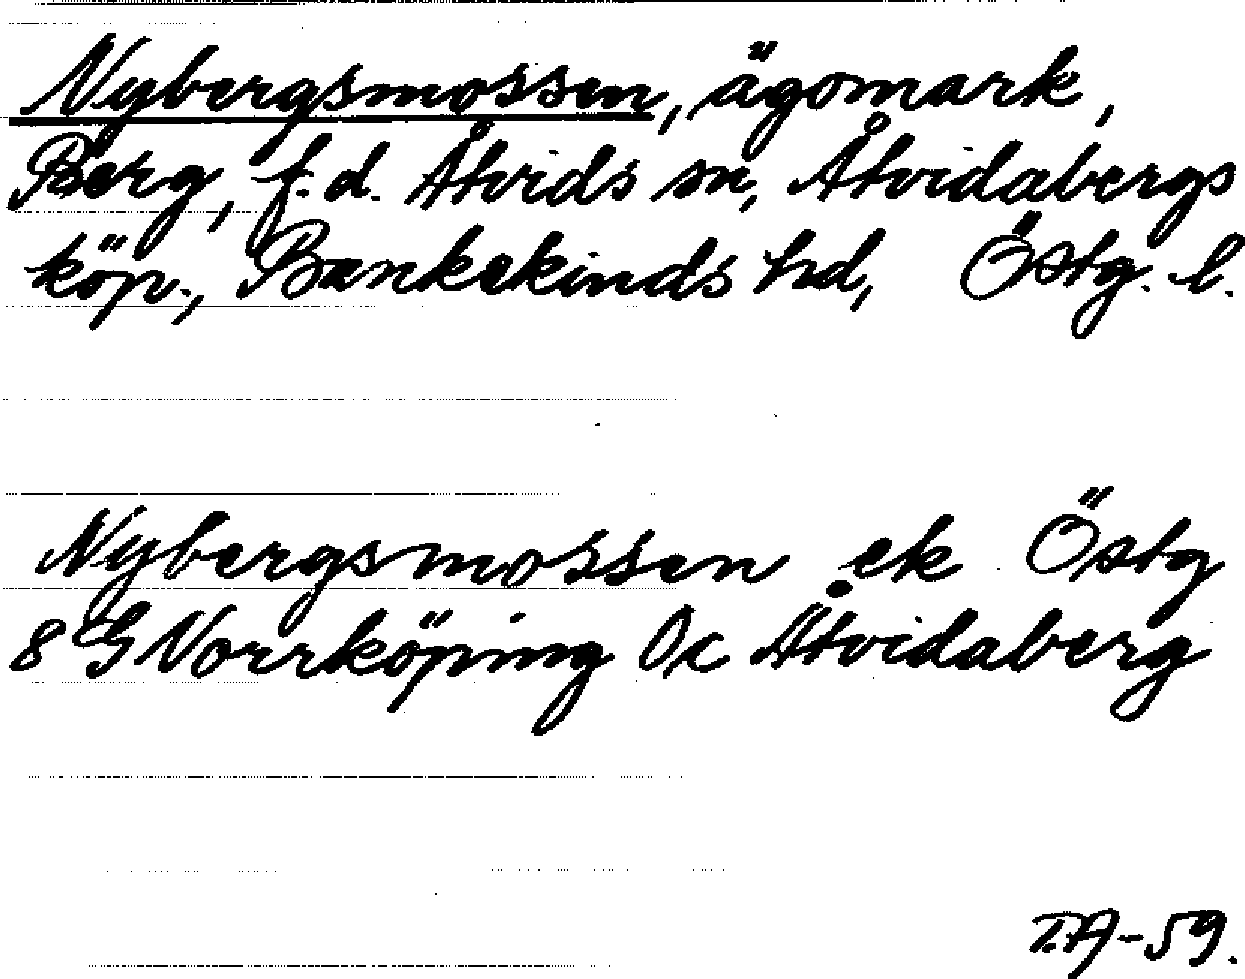 Nybergsmossen, ägomark,
Berg, f.d. Åtvids sn, Åtvidabergs
köp., Bankekinds hd, Östg. l.
Nybergsmossen ek Östg
8 G Norrköping Öc Åtvidaberg
T.A-59.